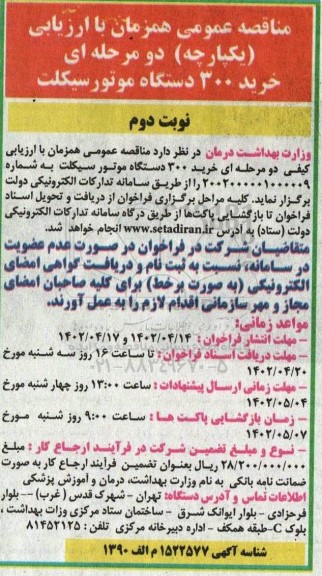 مناقصه عمومی همزمان با ارزیابی
(یکپارچه) دو مرحله ای
خرید ۳۰۰ دستگاه موتورسیکلت
نوبت دوم
وزارت بهداشت درمان در نظر دارد مناقصه عمومی همزمان با ارزیابی
کیفی دو مرحله ای خرید ۳۰۰ دستگاه موتور سیکلت به شماره
۲۰۰۲۰۰۰۰۰۱۰۰۰۰۹ را از طریق سامانه تدارکات الکترونیکی دولت
برگزار نماید. کلیه مراحل برگزاری فراخوان از دریافت و تحویل اسناد
فراخوان تا بازگشایی پاکت‌ها از طریق درگاه سامانه تدارکات الکترونیکی
دولت (ستاد) به آدرس www.setadiran.ir انجام خواهد شد.
متقاضیان شرکت در فراخوان در صورت عدم عضویت
در سامانه، نسبت به ثبت نام و دریافت گواهی امضای
الکترونیکی (به صورت برخط) برای کلیه صاحبان امضای
مجاز و مهر سازمانی اقدام لازم را به عمل آورند.
مواعد زمانی:
- مهلت انتشار فراخوان : ۱۴۰۲/۰۴/۱۴ و ۱۴۰۲/۰۴/۱۷
- مهلت دریافت اسناد فراخوان : تا ساعت ۱۶ روز سه شنبه مورخ
۱۴۰۲/۰۴/۲۰
- مهلت زمانی ارسال پیشنهادات : ساعت ۱۳:۰۰ روز چهار شنبه مورخ
۱۴۰۲/۰۵/۰۴
- زمان بازگشایی پاکت ها : ساعت ۹:۰۰ روز شنبه مورخ
۱۴۰۲/۰۵/۰۷
- نوع و مبلغ تضمین شرکت در فرآیند ارجاع کار : مبلغ
۲۸/۲۰۰/۰۰۰/۰۰۰ ریال بعنوان تضمین فرآیند ارجاع کار به صورت
ضمانت نامه بانکی به نام وزارت بهداشت، درمان و آموزش پزشکی
اطلاعات تماس و آدرس دستگاه: تهران - شهرک قدس (غرب) -- بلوار
فرحزادی - بلوار ایوانک شرق - ساختمان ستاد مرکزی وزات بهداشت ،
بلوک C-طبقه همکف - اداره دبیرخانه مرکزی تلفن : ۸۱۴۵۲۱۲۵
شناسه آگهی ۱۵۲۲۵۷۷ م الف ۱۳۹۰